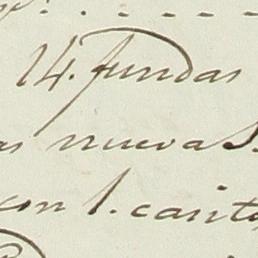 14. fundas
as nuevas.
con 1. canto